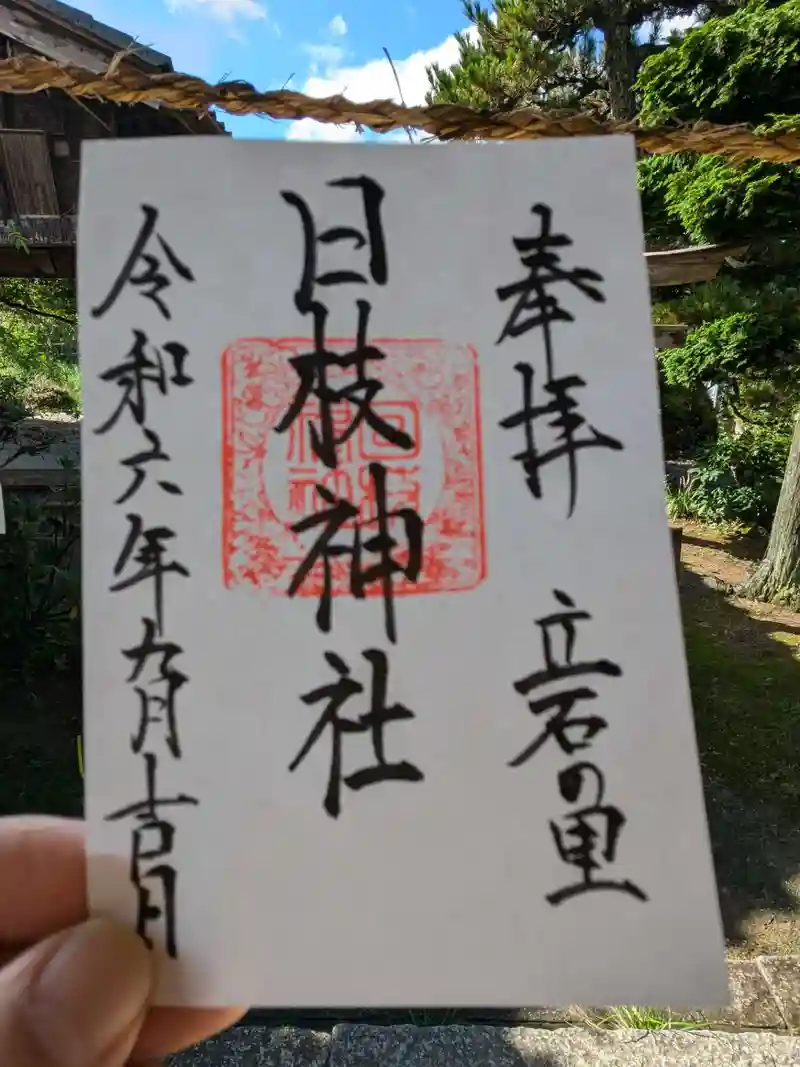 奉拝 立石の里
日枝神社
令和六年九月吉月